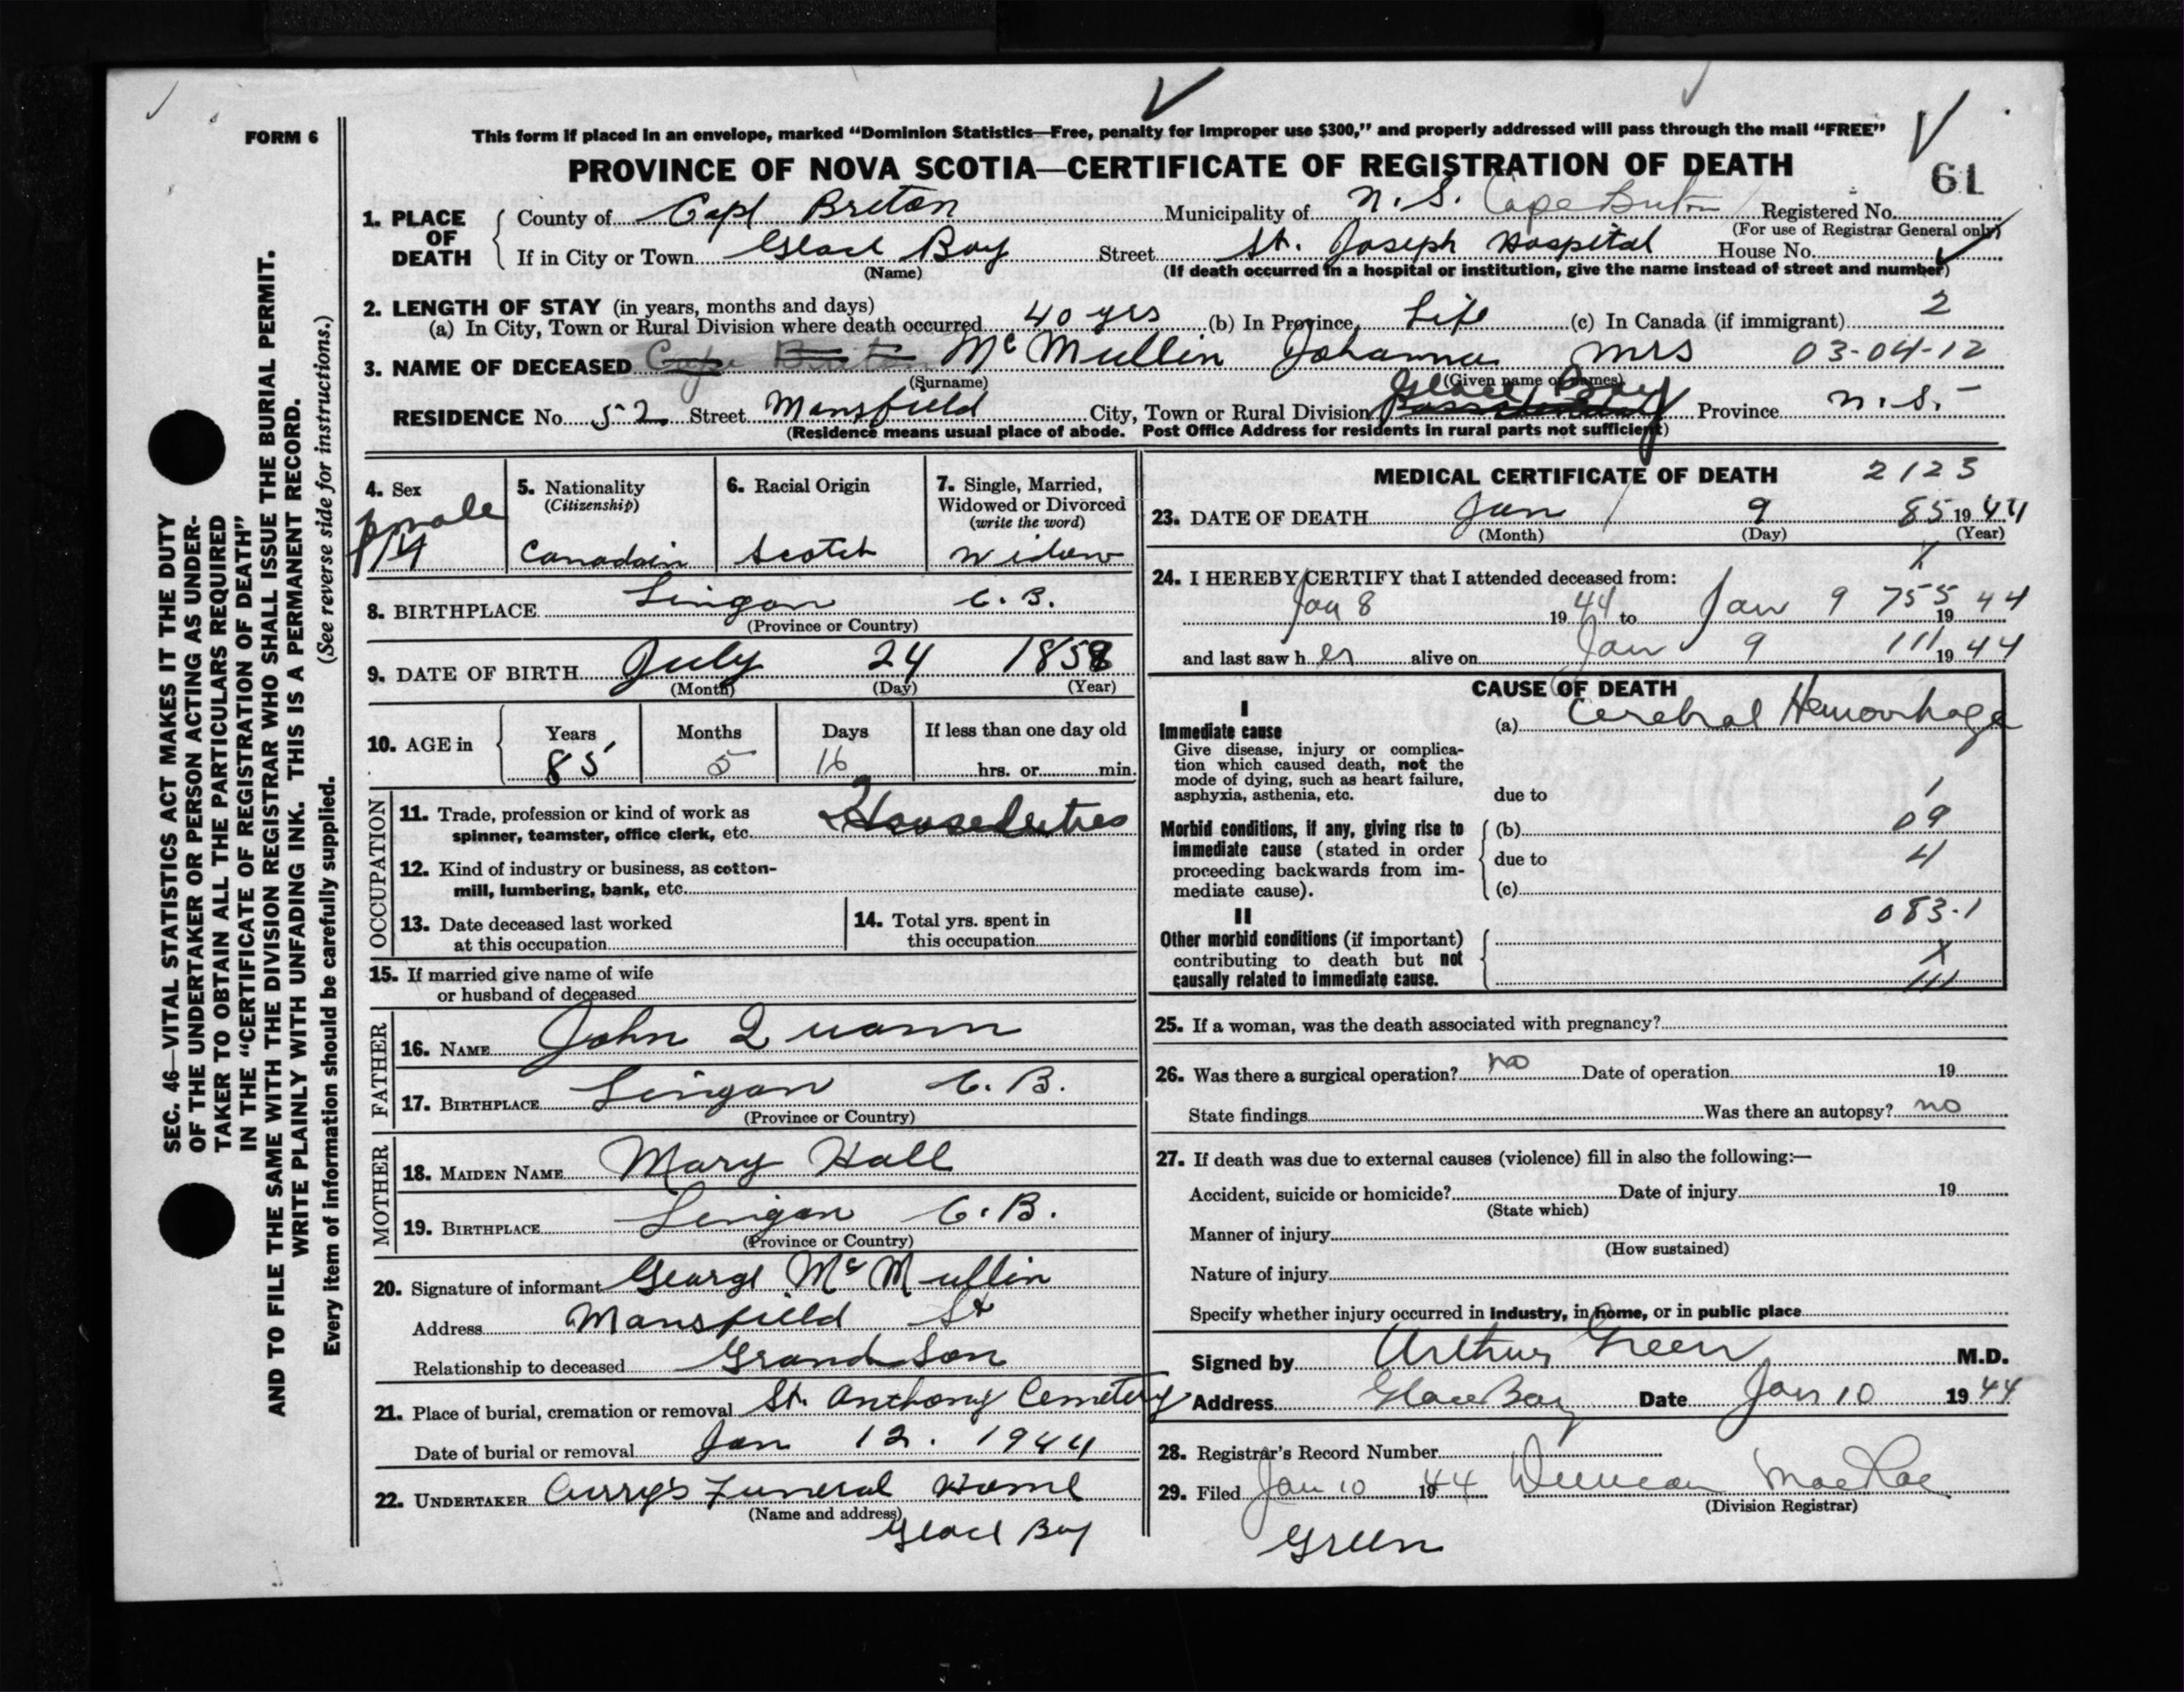 FORM 6
This form if placed in an envelope, marked “Dominion Statistics—Free, penalty for improper use $300,” and properly addressed will pass through the mail “FREE”
PROVINCE OF NOVA SCOTIA—CERTIFICATE OF REGISTRATION OF DEATH
61
1. PLACE OF DEATH
County of Cape Breton Municipality of N. S. Cape Breton Registered No.
(For use of Registrar General only)
If in City or Town Glace Bay Street St. Joseph Hospital House No.
(Name) (If death occurred in a hospital or institution, give the name instead of street and number)
2. LENGTH OF STAY (in years, months and days)
(a) In City, Town or Rural Division where death occurred 40 yrs (b) In Province Life (c) In Canada (if immigrant) 2
3. NAME OF DECEASED Cape Breton McMullin Johanna Mrs 03-04-12
(Surname) (Given name or names)
RESIDENCE No. 52 Street Mansfield City, Town or Rural Division Glace Bay Province N.S.
(Residence means usual place of abode. Post Office Address for residents in rural parts not sufficient)
4. Sex
female
5. Nationality
(Citizenship)
Canadain
6. Racial Origin
Scotch
7. Single, Married,
Widowed or Divorced
(write the word)
Widow
8. BIRTHPLACE Lingan C. B.
(Province or Country)
9. DATE OF BIRTH July 24 1858
(Month) (Day) (Year)
10. AGE in
Years Months Days If less than one day old
85 5 16 hrs. or min.
OCCUPATION
11. Trade, profession or kind of work as
spinner, teamster, office clerk, etc. Houseduties
12. Kind of industry or business, as cotton-
mill, lumbering, bank, etc.
13. Date deceased last worked
at this occupation
14. Total yrs. spent in
this occupation
15. If married give name of wife
or husband of deceased
FATHER
16. NAME John Quann
17. BIRTHPLACE Lingan C. B.
(Province or Country)
MOTHER
18. MAIDEN NAME Mary Hall
19. BIRTHPLACE Lingan C. B.
(Province or Country)
20. Signature of informant George McMullin
Address Mansfield St
Relationship to deceased Grandson
21. Place of burial, cremation or removal St. Anthony Cemetery
Date of burial or removal Jan 12. 1944
22. UNDERTAKER Curry's Funeral Home
(Name and address)
Glace Bay
MEDICAL CERTIFICATE OF DEATH 2123
23. DATE OF DEATH Jan 9 85 1944
(Month) (Day) (Year)
X
24. I HEREBY CERTIFY that I attended deceased from:
Jan 8 1944 to Jan 9 755 1944
and last saw her alive on Jan 9 111 1944
CAUSE OF DEATH
I
Immediate cause
Give disease, injury or complica-
tion which caused death, not the
mode of dying, such as heart failure,
asphyxia, asthenia, etc.
(a) Cerebral Hemorrhage
due to 1
Morbid conditions, if any, giving rise to
immediate cause (stated in order
proceeding backwards from im-
mediate cause).
(b) 09
due to 4
(c)
083.1
II
Other morbid conditions (if important)
contributing to death but not
causally related to immediate cause.
X
111
25. If a woman, was the death associated with pregnancy?
26. Was there a surgical operation? no Date of operation 19
State findings Was there an autopsy? no
27. If death was due to external causes (violence) fill in also the following:—
Accident, suicide or homicide? Date of injury 19
(State which)
Manner of injury
(How sustained)
Nature of injury
Specify whether injury occurred in industry, in home, or in public place
Signed by Arthur Green M.D.
Address Glace Bay Date Jan 10 1944
28. Registrar's Record Number
29. Filed Jan 10 1944 Duncan MacRae
(Division Registrar)
Green
SEC. 46—VITAL STATISTICS ACT MAKES IT THE DUTY
OF THE UNDERTAKER OR PERSON ACTING AS UNDER-
TAKER TO OBTAIN ALL THE PARTICULARS REQUIRED
IN THE “CERTIFICATE OF REGISTRATION OF DEATH”
AND TO FILE THE SAME WITH THE DIVISION REGISTRAR WHO SHALL ISSUE THE BURIAL PERMIT.
WRITE PLAINLY WITH UNFADING INK. THIS IS A PERMANENT RECORD.
(See reverse side for instructions.)
Every item of information should be carefully supplied.